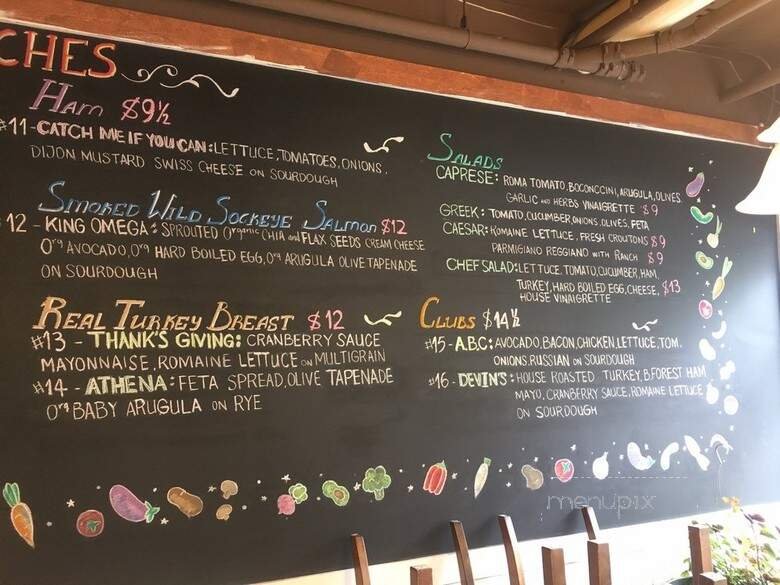 CHES
Ham $9½
#11-CATCH ME IF YOU CAN: LETTUCE, TOMATOES, ONIONS,
DIJON MUSTARD SWISS CHEESE ON SOURDOUGH
Smoked Wild Sockeye Salmon $12
12 - KING OMEGA: SPROUTED Organic CHIA and FLAX SEEDS CREAM CHEESE
Org AVOCADO, Org HARD BOILED EGG, Org ARUGULA OLIVE TAPENADE
ON SOURDOUGH
REAL TURKEY BREAST $12
#13 - THANK'S GIVING: CRANBERRY SAUCE
MAYONNAISE, ROMAINE LETTUCE ON MULTIGRAIN
#14 - ATHENA: FETA SPREAD, OLIVE TAPENADE
Org BABY ARUGULA ON RYE
SALADS
CAPRESE: ROMA TOMATO, BOCONCCINI, ARUGULA, OLIVES
GARLIC and HERBS VINAIGRETTE $9
GREEK: TOMATO, CUCUMBER, ONIONS, OLIVES, FETA
CAESAR: ROMAINE LETTUCE, FRESH CROUTONS $9
PARMIGIANO REGGIANO WITH RANCH $9
CHEF SALAD: LETTUCE, TOMATO, CUCUMBER, HAM,
TURKEY, HARD BOILED EGG, CHEESE, $13
HOUSE VINAIGRETTE
CLUBS $14½
#15- A.B.C: AVOCADO, BACON, CHICKEN, LETTUCE, TOM.
ONIONS. RUSSIAN ON SOURDOUGH
#16 - DEVIN'S: HOUSE ROASTED TURKEY, B.FOREST HAM
MAYO, CRANBERRY SAUCE, ROMAINE LETTUCE
ON SOURDOUGH
menupix